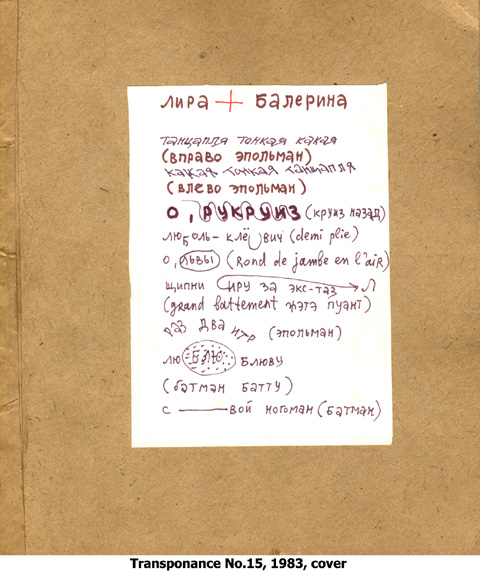 лира + Балерина
танцапля тонкая какая
(вправо эпольман)
какая тонкая танцапля
(влево эпольман)
О, РУКРУИЗ (круиз назад)
люболь-клё вич (demi plie)
О, львы (Rond de jambe en l'air)
щипни иру за экс-таз Л
(grand battement жэтэ пуант)
раз два итр (эпольман)
лю БЛЮ блюву
(батман батту)
с — вой ногоман (батман)
Transponance No.15, 1983, cover